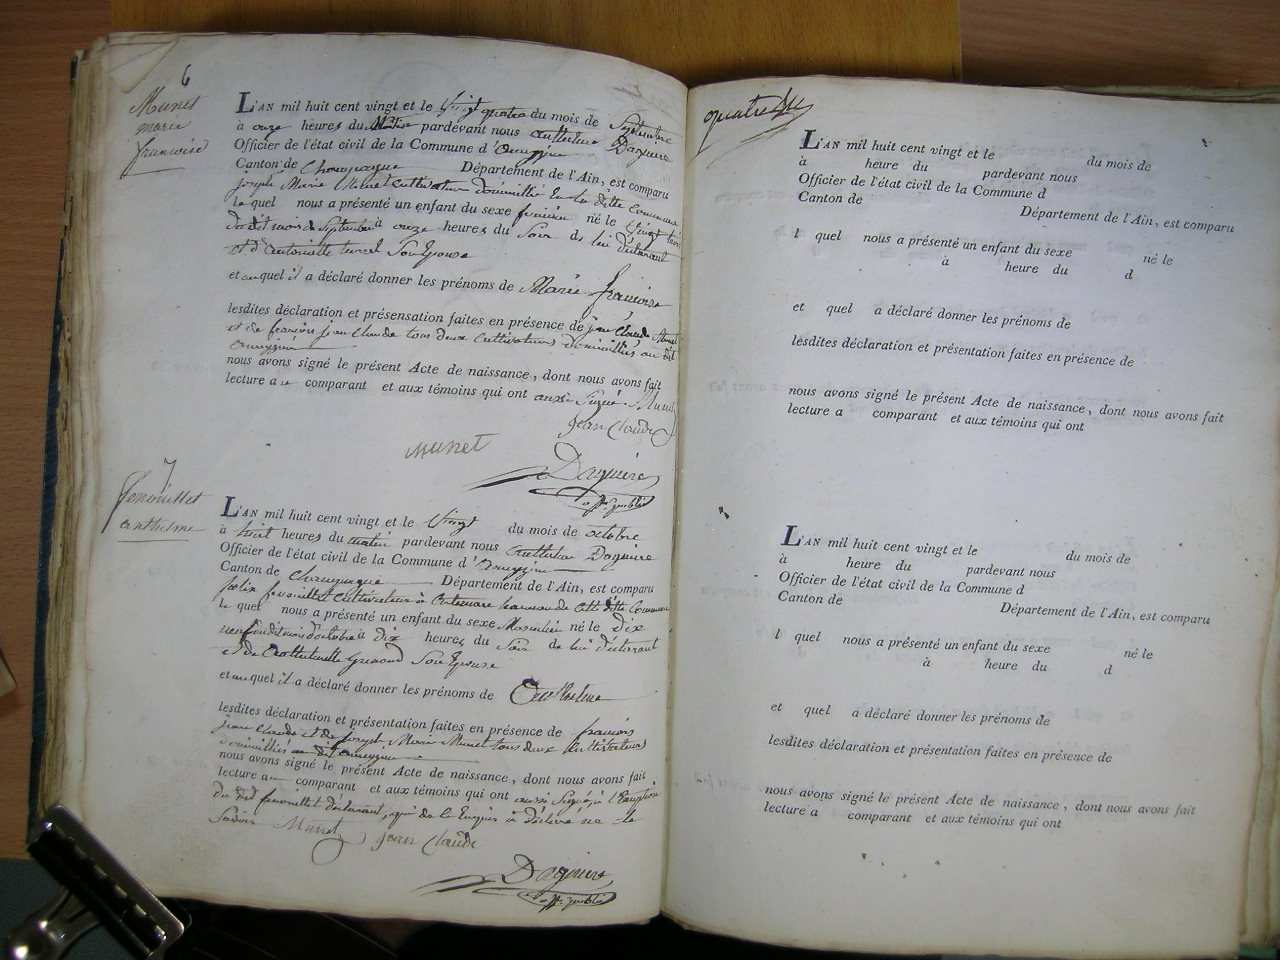 6
Munet
marie
francoise
L'AN mil huit cent vingt et le Vingt quatre du mois de Septembre
à onze heures du Matin pardevant nous anthelme Daguire
Officier de l'état civil de la Commune d'
Canton de Champagne Département de l'Ain, est comparu
joseph Marie Munet cultivateur domicillié En la ditte Commune
le quel nous a présenté un enfant du sexe feminin né le Vingt trois
dudit mois de Septembre à onze heures du Soir de lui déclarant
et d'antoinette Son Epouse
et auquel il a déclaré donner les prénoms de Marie françoise
lesdites déclaration et présensation faites en présence de jean Claude Munet
et de françois jean Claude tous deux cultivateurs domicilliés au dit
nous avons signé le présent Acte de naissance, dont nous avons fait
lecture au comparant et aux témoins qui ont aussi Signé Munet
Jean Claude
Munet
Daguire
off. public
7
fenouillet
anthelme
L'AN mil huit cent vingt et le Vingt du mois de octobre
à huit heures du matin pardevant nous anthelme Daguire
Officier de l'état civil de la Commune d'
Canton de Champagne Département de l'Ain, est comparu
felix fenouillet cultivateur à hameau de Cette ditte Commune
le quel nous a présenté un enfant du sexe Masculin né le Dix
neuf du dit mois d'octobre à dix heures du Soir de lui déclarant
et de Son Epouse
et auquel il a déclaré donner les prénoms de Anthelme
lesdites déclaration et présentation faites en présence de francois
jean Claude et de joseph Marie Munet tous deux Cultivateurs
domicilliés au dit
nous avons signé le présent Acte de naissance, dont nous avons fait
lecture au comparant et aux témoins qui ont aussi Signé à l'Exception
du dit fenouillet déclarant, qui de le Enquis à déclaré ne le
Savoir Munet Jean Claude
Daguire
off. public
L'AN mil huit cent vingt et le du mois de
à heure du pardevant nous
Officier de l'état civil de la Commune d
Canton de Département de l'Ain, est comparu
l quel nous a présenté un enfant du sexe né le
à heure du d
et quel a déclaré donner les prénoms de
lesdites déclaration et présentation faites en présence de
nous avons signé le présent Acte de naissance, dont nous avons fait
lecture a comparant et aux témoins qui ont
L'AN mil huit cent vingt et le du mois de
à heure du pardevant nous
Officier de l'état civil de la Commune d
Canton de Département de l'Ain, est comparu
l quel nous a présenté un enfant du sexe né le
à heure du d
et quel a déclaré donner les prénoms de
lesdites déclaration et présentation faites en présence de
nous avons signé le présent Acte de naissance, dont nous avons fait
lecture a comparant et aux témoins qui ont